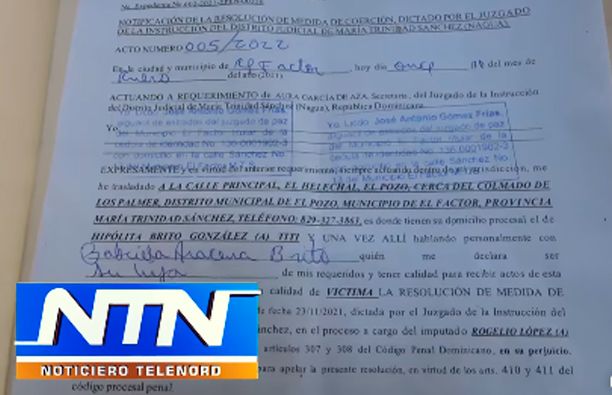 No. Expediente No.
NOTIFICACIÓN DE LA RESOLUCIÓN DE MEDIDA DE COERCIÓN, DICTADO POR EL JUZGADO
DE LA INSTRUCCIÓN DEL DISTRITO JUDICIAL DE MARÍA TRINIDAD SÁNCHEZ (NAGUA).
ACTO NUMERO 005/2022
En la ciudad y municipio de El Factor, hoy día once 11 del mes de
Enero del año (2021)
ACTUANDO A REQUERIMIENTO de AURA GARCÍA DE AZA. Secretaria, del Juzgado de la Instrucción
del Distrito Judicial de María Trinidad Sánchez (Nagua), República Dominicana.
Yo Licdo. José Antonio Gómez Frías,
alguacil de estrados del juzgado de paz
del Municipio El Factor titular de la
cedula de identidad No. 136-0001902-3
con domicilio en la calle Sánchez No.
Municipio El Factor M.T.S
Yo
Yo Licdo. José Antonio Gómez Frías,
alguacil de estrados del juzgado de paz
del Municipio El Factor titular de la
cedula de identidad No. 136-0001902-3
en la calle Sánchez No.
Municipio El Factor
EXPRESAMENTE y en virtud del anterior requerimiento, siempre actuando dentro de mi jurisdicción, me
he trasladado A LA CALLE PRINCIPAL, EL HELECHAL, EL POZO, CERCA DEL COLMADO DE
LOS PALMER, DISTRITO MUNICIPAL DE EL POZO, MUNICIPIO DE EL FACTOR, PROVINCIA
MARÍA TRINIDAD SÁNCHEZ, TELÉFONO: 829-327-3863, es donde tienen su domicilio procesal el de
HIPÓLITA BRITO GONZÁLEZ (A) TITI Y UNA VEZ ALLÍ hablando personalmente con
Gabriela Aracena Brito quién me declara ser
su hija de mis requeridos y tener calidad para recibir actos de esta
calidad de VICTIMA LA RESOLUCIÓN DE MEDIDA DE
de fecha 23/11/2021, dictada por el Juzgado de la Instrucción del
Sánchez, en el proceso a cargo del imputado ROGELIO LÓPEZ (A)
artículos 307 y 308 del Código Penal Dominicano, en su perjuicio.
para apelar la presente resolución, en virtud de los arts. 410 y 411 del
código procesal penal.
NTN
NOTICIERO TELENORD